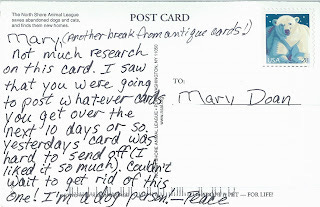 The North Shore Animal League
saves abandoned dogs and cats,
and finds them new homes.
POST CARD
USA
Mary, (Another break from antique cards!)
Not much research
on this card. I saw
that you were going
to post whatever cards
you get over the
next 10 days or so.
yesterdays card was
hard to send off (I
liked it so much). Couldn't
wait to get rid of this
one! I'm a dog person — Peace
TO:
Mary Doan
— FOR LIFE!